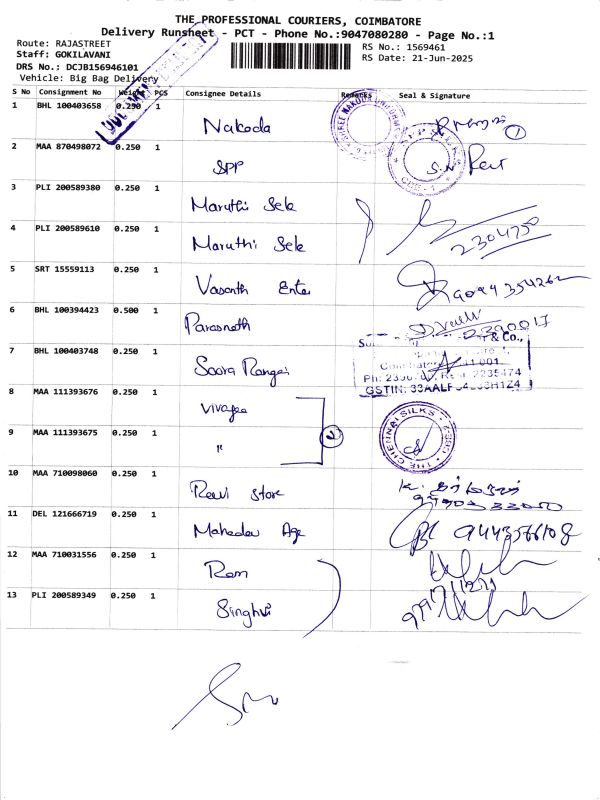 THE PROFESSIONAL COURIERS, COIMBATORE
Delivery Runsheet - PCT - Phone No.:9047080280 - Page No.:1
Route: RAJASTREET
Staff: GOKILAVANI
DRS No.: DCJB156946101
Vehicle: Big Bag Delivery
RS No.: 1569461
RS Date: 21-Jun-2025
S No Consignment No Weight PCS Consignee Details Remarks Seal & Signature
1 BHL 100403658 0.250 1 Nakoda
2 MAA 870498072 0.250 1 SPP
3 PLI 200589380 0.250 1 Maruthi Sele
4 PLI 200589610 0.250 1 Maruthi Sele 2304750
5 SRT 15559113 0.250 1 Vasanth Ente
6 BHL 100394423 0.500 1 Parasnath 2390017
7 BHL 100403748 0.250 1 Soora Rangai
& Co.,
GSTIN: 33AALF
8 MAA 111393676 0.250 1 Vinayaa
9 MAA 111393675 0.250 1 "
THE CHENNAI SILKS
10 MAA 710098060 0.250 1 Revi Store
11 DEL 121666719 0.250 1 Mahadev Age 9443566108
12 MAA 710031556 0.250 1 Ram
13 PLI 200589349 0.250 1 Singhvi